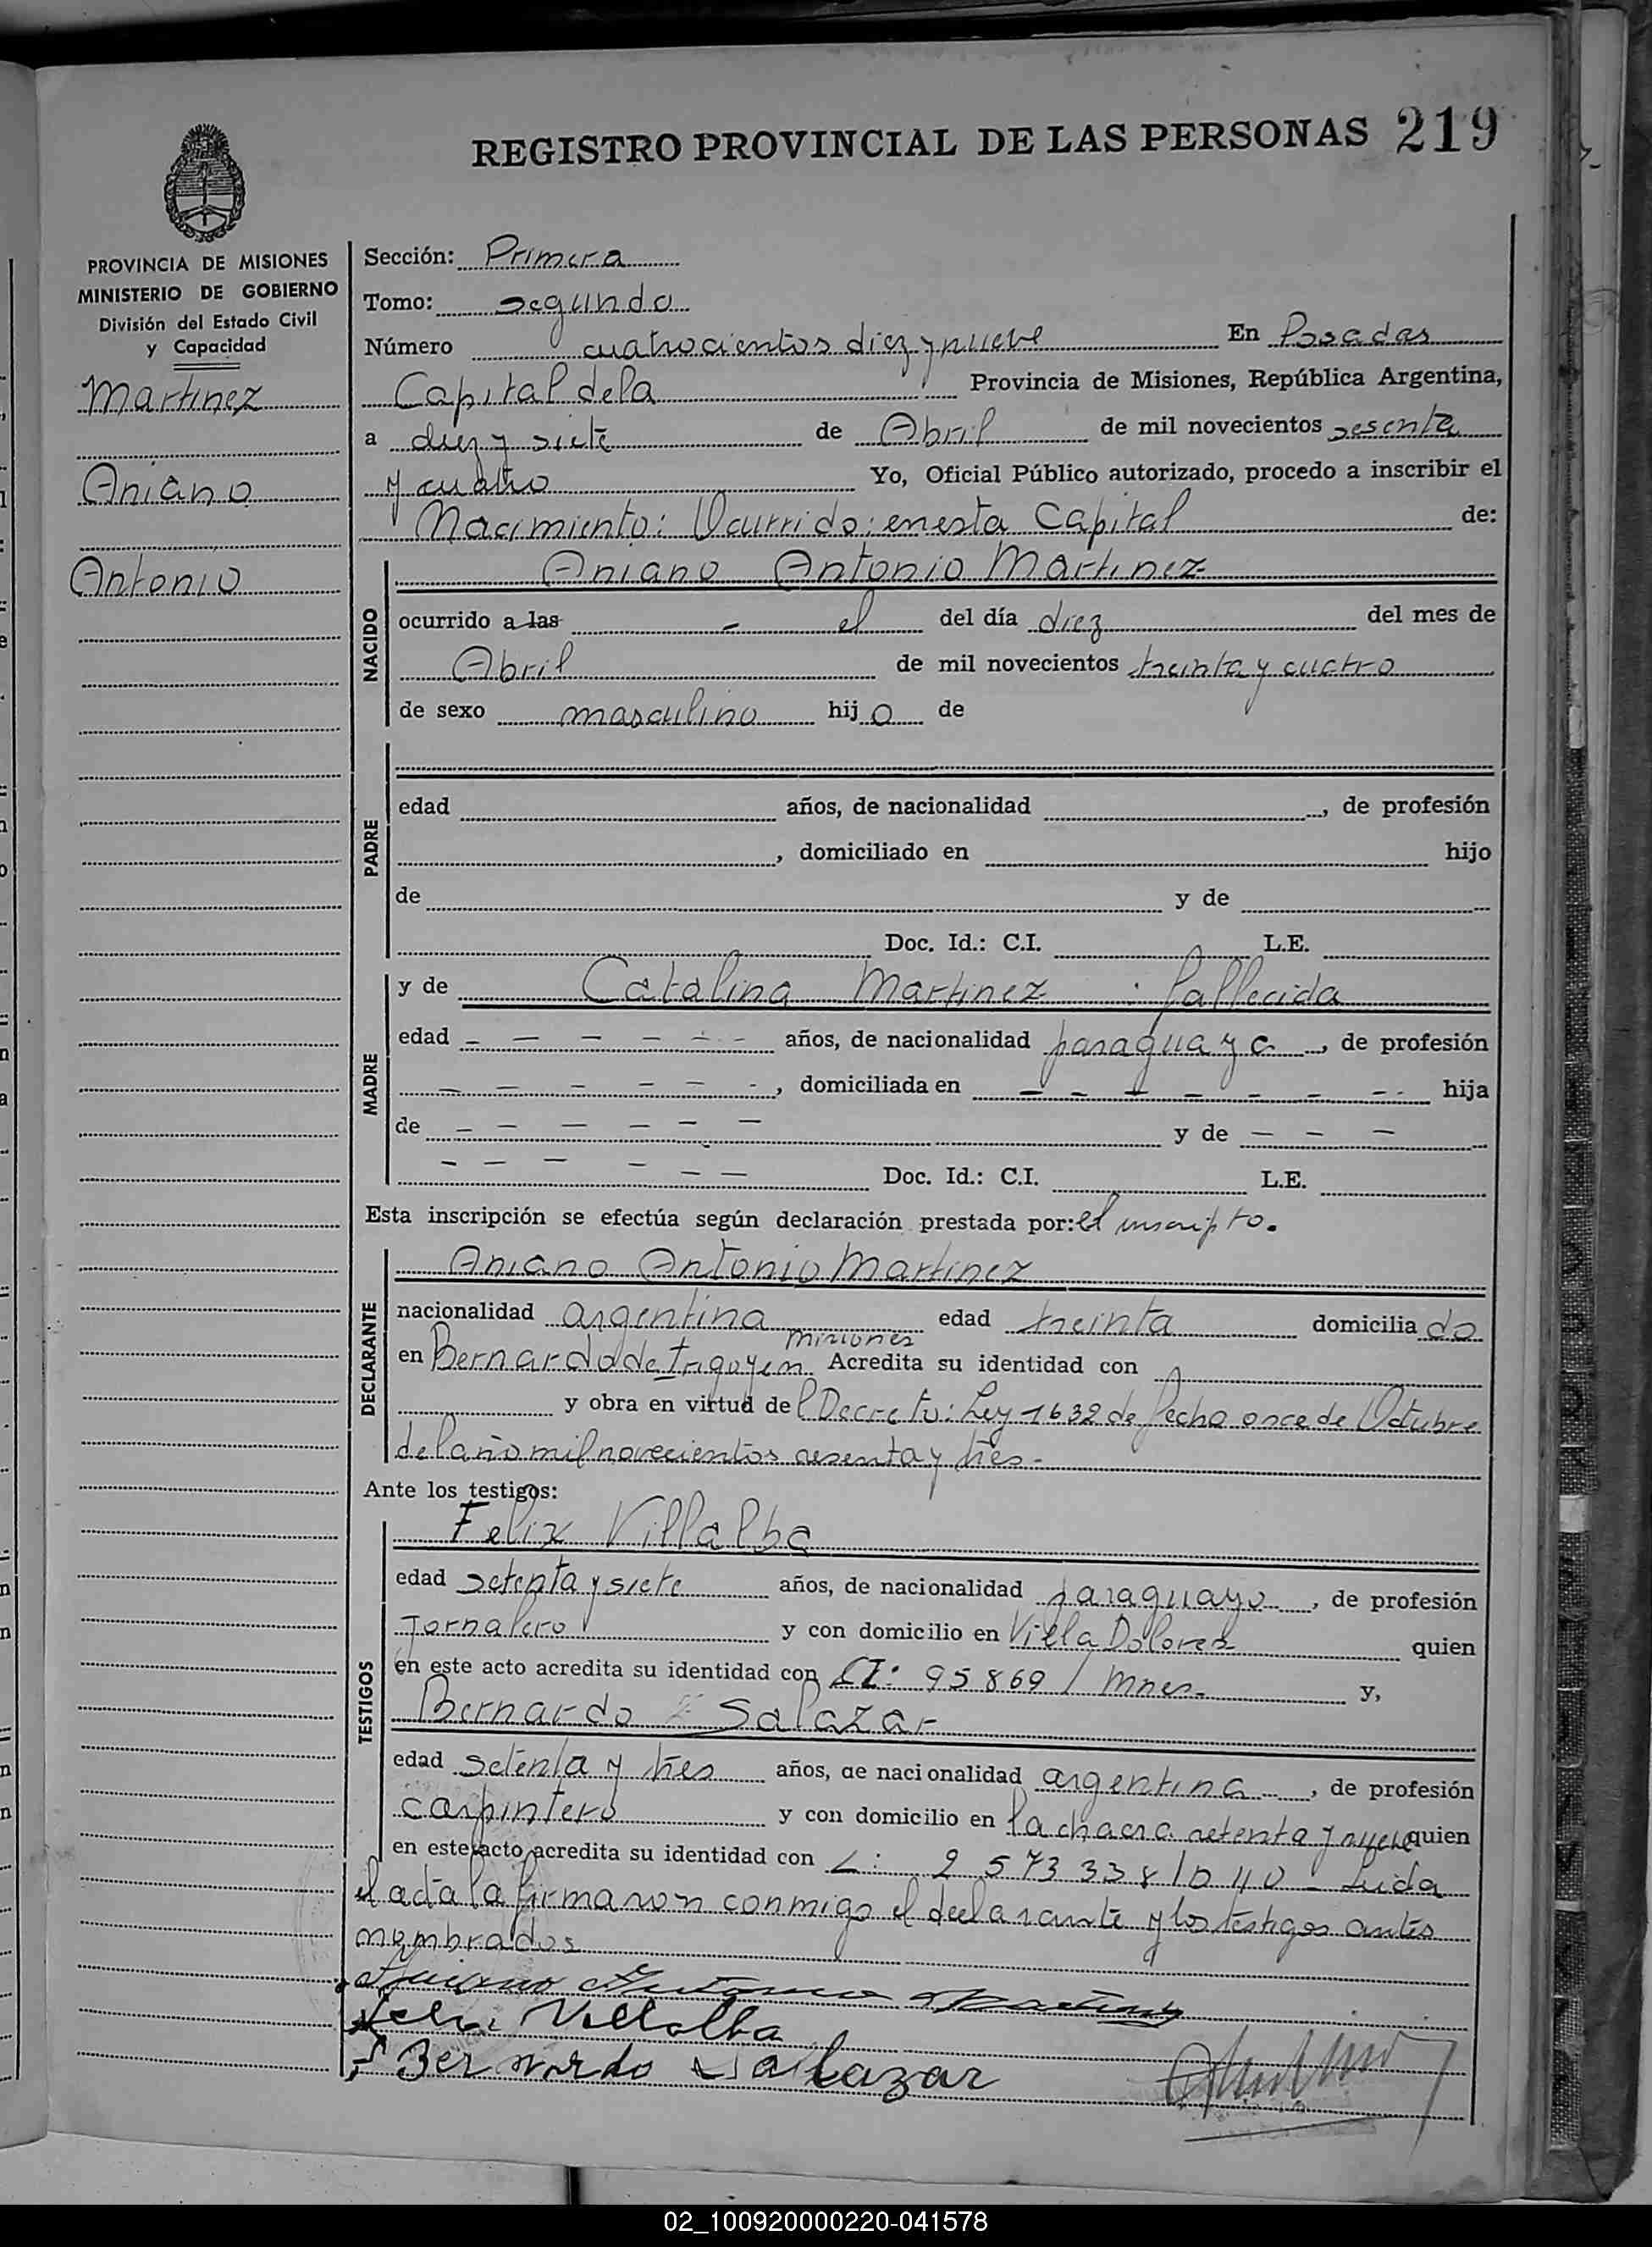 REGISTRO PROVINCIAL DE LAS PERSONAS 219
PROVINCIA DE MISIONES
MINISTERIO DE GOBIERNO
División del Estado Civil
y Capacidad
Martinez
Aniano
Antonio
Sección: Primera
Tomo: Segundo
Número cuatrocientos diez y nueve En Posadas
Capital de la Provincia de Misiones, República Argentina,
a diez y siete de Abril de mil novecientos sesenta
y cuatro Yo, Oficial Público autorizado, procedo a inscribir el
Nacimiento: Ocurrido: en esta Capital de:
NACIDO
Aniano Antonio Martinez
ocurrido a las - el del día diez del mes de
Abril de mil novecientos treinta y cuatro
de sexo masculino hijo de
PADRE
edad años, de nacionalidad , de profesión
, domiciliado en hijo
de y de
Doc. Id.: C.I. L.E.
MADRE
y de Catalina Martinez . fallecida
edad - - - - - - años, de nacionalidad paraguaya, de profesión
- - - - - -, domiciliada en - - - - - - - - hija
de - - - - - - y de - - -
- - - - - - Doc. Id.: C.I. L.E.
Esta inscripción se efectúa según declaración prestada por: el inscripto.
DECLARANTE
Aniano Antonio Martinez
nacionalidad argentina edad treinta domiciliado
Misiones
en Bernardo de Irigoyen Acredita su identidad con
y obra en virtud del Decreto: Ley 1632 de fecha once de Octubre
del año mil novecientos sesenta y tres.-
Ante los testigos:
TESTIGOS
Felix Villalba
edad setenta y siete años, de nacionalidad paraguayo, de profesión
Jornalero y con domicilio en Villa Dolores quien
en este acto acredita su identidad con CI: 95869 / Mnes.- y,
Bernardo Salazar
edad setenta y tres años, de nacionalidad argentina, de profesión
carpintero y con domicilio en la chacra setenta y nueve quien
en este acto acredita su identidad con L: 2573338 / D 40 - Leida
el acta la firmaron conmigo el declarante y los testigos antes
nombrados
Aniano Antonio Martinez
Felix Villalba
Bernardo Salazar
02_100920000220-041578